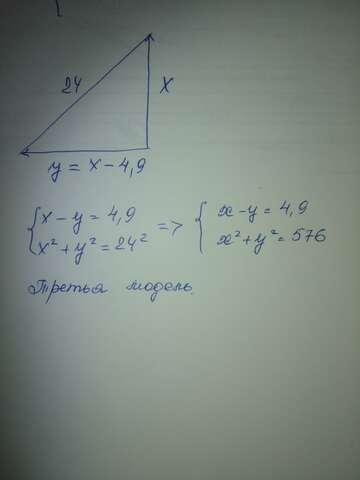 24
x
y = x - 4,9
{ x - y = 4,9 => { x - y = 4,9
x² + y² = 24² x² + y² = 576
Третья модель.